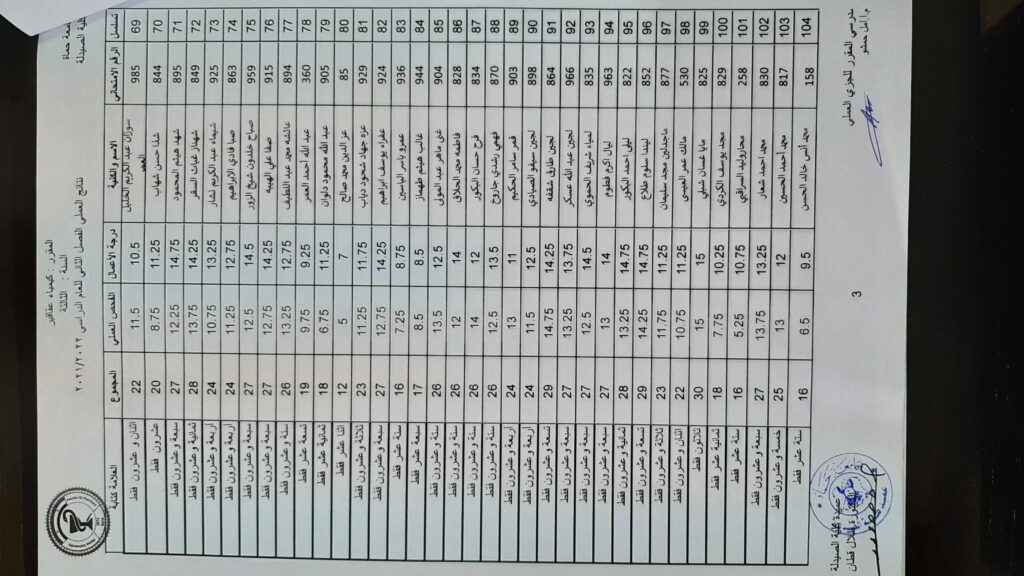 جامعة حماة
كلية الصيدلة
المقرر : كيمياء عقاقير
السنة : الثالثة
نتائج العملي الفصل الثاني للعام الدراسي ٢٠٢١/٢٠٢٢
تسلسل الرقم الامتحاني الاسم والكنية درجة الاعمال الفحص العملي المجموع العلامة كتابة
69 985 سوزان عبد الكريم الخليل العمر 10.5 11.5 22 اثنان و عشرون فقط
70 844 شفا حسن شهاب 11.25 8.75 20 عشرون فقط
71 895 شهد هيثم المحمود 14.75 12.25 27 سبعة و عشرون فقط
72 849 شهناز غياث السفر 14.25 13.75 28 ثمانية و عشرون فقط
73 925 شيماء عبد الكريم نشار 13.25 10.75 24 أربعة و عشرون فقط
74 863 صبا فادي الابراهيم 12.75 11.25 24 أربعة و عشرون فقط
75 959 صباح خلدون شيخ الزور 14.5 12.5 27 سبعة و عشرون فقط
76 915 صفا علي الهيبه 14.25 12.75 27 سبعة و عشرون فقط
77 894 عائشه محمد عبد اللطيف 12.75 13.25 26 ستة و عشرون فقط
78 360 عبد الله احمد العمر 9.25 9.75 19 تسعة عشر فقط
79 905 عبد الله محمود دلوان 11.25 6.75 18 ثمانية عشر فقط
80 85 عز الدين محمد صالح 7 5 12 اثنا عشر فقط
81 929 عزه جهاد شحود دياب 11.75 11.25 23 ثلاثة و عشرون فقط
82 924 عفراء يوسف ابراهيم 14.25 12.75 27 سبعة و عشرون فقط
83 936 عمرو باسم الياسين 8.75 7.25 16 ستة عشر فقط
84 944 غالب هيثم طهماز 8.5 8.5 17 سبعة عشر فقط
85 904 غنى ماهر عبد المولى 12.5 13.5 26 ستة و عشرون فقط
86 828 فاطمه محمد الحلاق 14 12 26 ستة و عشرون فقط
87 834 فرح حسان البكور 12 14 26 ستة و عشرون فقط
88 870 فهمي رشدي جاروخ 13.5 12.5 26 ستة و عشرون فقط
89 903 قمر سامر الحكيم 11 13 24 أربعة و عشرون فقط
90 898 لجين سيفو الصيادي 12.5 11.5 24 أربعة و عشرون فقط
91 864 لجين طارق شقفه 14.25 14.75 29 تسعة و عشرون فقط
92 966 لجين عبد الله عسكر 13.75 13.25 27 سبعة و عشرون فقط
93 835 لمياء شريف الحموي 14.5 12.5 27 سبعة و عشرون فقط
94 963 ليال اكرم فطوم 14 13 27 سبعة و عشرون فقط
95 822 ليلى احمد البكور 14.75 13.25 28 ثمانية و عشرون فقط
96 852 ليندا سلوم طلاع 14.75 14.25 29 تسعة و عشرون فقط
97 877 ماجدلين محمد سليمان 11.25 11.75 23 ثلاثة و عشرون فقط
98 530 مالك عمر العيسى 11.25 10.75 22 اثنان و عشرون فقط
99 825 مايا غسان شبلي 15 15 30 ثلاثون فقط
100 829 مجد يوسف الكردي 10.25 7.75 18 ثمانية عشر فقط
101 258 محاروليد السراقبي 10.75 5.25 16 ستة عشر فقط
102 830 محمد احمد شعار 13.25 13.75 27 سبعة و عشرون فقط
103 817 محمد احمد الحسين 12 13 25 خمسة و عشرون فقط
104 158 محمد أنس خالد الحسن 9.5 6.5 16 ستة عشر فقط
مدرسي المقرر للجزئي العملي
م.أ.امل خضر
3
عميدة كلية الصيدلة